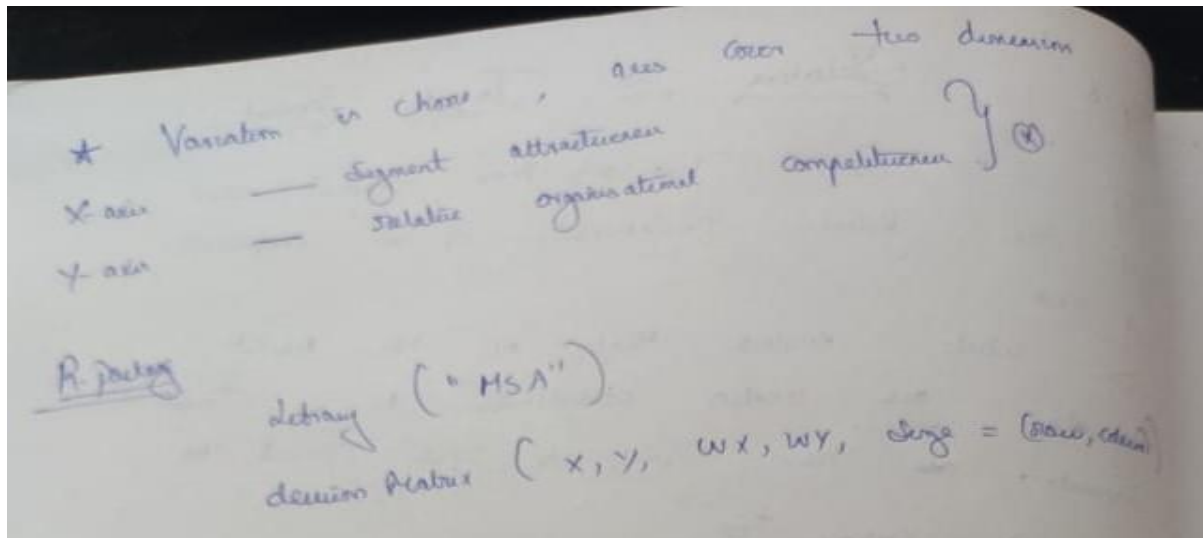 * Variation in chose, axes cover two dimension
X-axis — Segment attractiveness
Y-axis — relative organisational competitiveness } *
R-package
library ("MSA")
decision Matrix (X, Y, WX, WY, Size = (row, column)